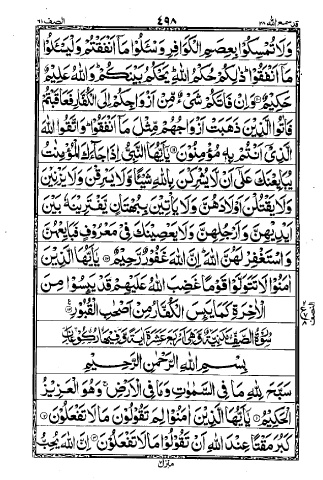 قد سمع الله ٢٨ ٤٩٨ الصف ٦١
وَلَا تُمْسِكُوْا بِعِصَمِ الْكَوَافِرِ وَسْـَٔلُوْا مَآ اَنْفَقْتُمْ وَلْيَسْـَٔلُوْا
مَآ اَنْفَقُوْا ذٰلِكُمْ حُكْمُ اللّٰهِ يَحْكُمُ بَيْنَكُمْ وَاللّٰهُ عَلِيْمٌ
حَكِيْمٌ وَاِنْ فَاتَكُمْ شَىْءٌ مِّنْ اَزْوَاجِكُمْ اِلَى الْكُفَّارِ فَعَاقَبْتُمْ
فَاٰتُوا الَّذِيْنَ ذَهَبَتْ اَزْوَاجُهُمْ مِّثْلَ مَآ اَنْفَقُوْا وَاتَّقُوا اللّٰهَ
الَّذِىْٓ اَنْتُمْ بِهٖ مُؤْمِنُوْنَ يٰٓاَيُّهَا النَّبِىُّ اِذَا جَآءَكَ الْمُؤْمِنٰتُ
يُبَايِعْنَكَ عَلٰٓى اَنْ لَّا يُشْرِكْنَ بِاللّٰهِ شَيْـًٔا وَّلَا يَسْرِقْنَ وَلَا يَزْنِيْنَ
وَلَا يَقْتُلْنَ اَوْلَادَهُنَّ وَلَا يَاْتِيْنَ بِبُهْتَانٍ يَّفْتَرِيْنَهٗ بَيْنَ
اَيْدِيْهِنَّ وَاَرْجُلِهِنَّ وَلَا يَعْصِيْنَكَ فِىْ مَعْرُوْفٍ فَبَايِعْهُنَّ
وَاسْتَغْفِرْ لَهُنَّ اللّٰهَ اِنَّ اللّٰهَ غَفُوْرٌ رَّحِيْمٌ يٰٓاَيُّهَا الَّذِيْنَ
اٰمَنُوْا لَا تَتَوَلَّوْا قَوْمًا غَضِبَ اللّٰهُ عَلَيْهِمْ قَدْ يَئِسُوْا مِنَ
الْاٰخِرَةِ كَمَا يَئِسَ الْكُفَّارُ مِنْ اَصْحٰبِ الْقُبُوْرِ
سُوْرَةُ الصَّفِّ مَدَنِيَّةٌ وَّهِىَ اَرْبَعَ عَشَرَةَ اٰيَةً وَّفِيْهَا رُكُوْعَانِ
بِسْمِ اللّٰهِ الرَّحْمٰنِ الرَّحِيْمِ
سَبَّحَ لِلّٰهِ مَا فِى السَّمٰوٰتِ وَمَا فِى الْاَرْضِ وَهُوَ الْعَزِيْزُ
الْحَكِيْمُ يٰٓاَيُّهَا الَّذِيْنَ اٰمَنُوْا لِمَ تَقُوْلُوْنَ مَا لَا تَفْعَلُوْنَ
كَبُرَ مَقْتًا عِنْدَ اللّٰهِ اَنْ تَقُوْلُوْا مَا لَا تَفْعَلُوْنَ اِنَّ اللّٰهَ يُحِبُّ
منزل